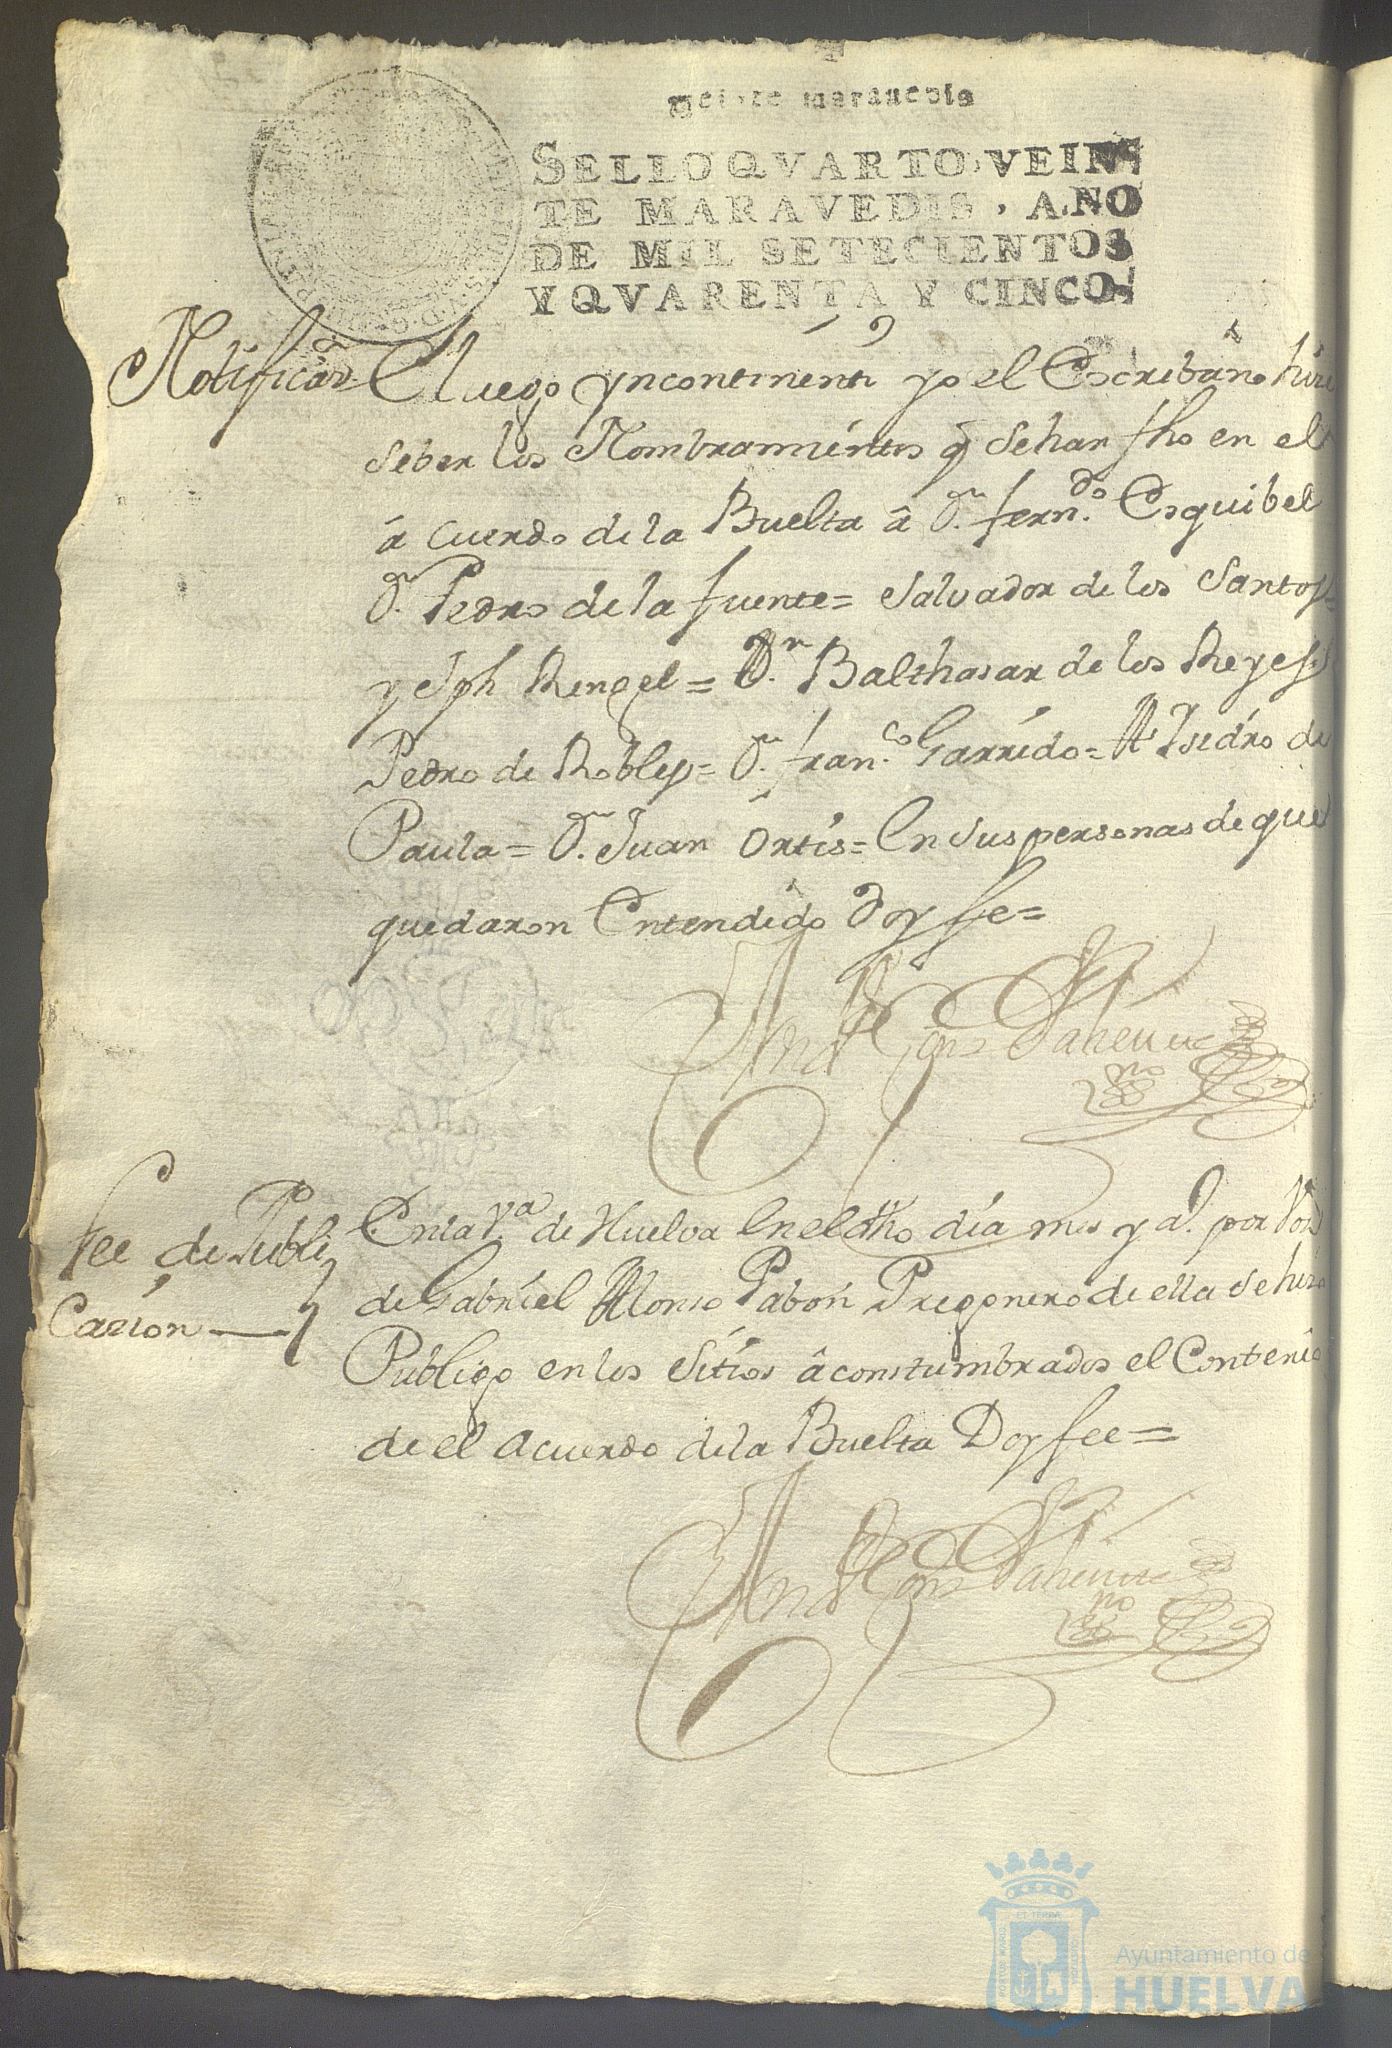 Veinte maravedis
SELLO QVARTO, VEIN-
TE MARAVEDIS, AÑO
DE MIL SETECIENTOS
Y QVARENTA Y CINCO.
Notificaon
E luego yncontinenti yo el Escribano hize
seber los Nombramientos q̃ sehan fho en el
âcuerdo de la Buelta â Dn. fern.do Esquibel
Dn. Pedro de la fuente = Salvador de los Santos =
y Jph Rengel = Dn. Balthasar de los Reyes =
Pedro de Robles = Dn. fran.co Garrido = Isidro de
Paula = Dn. Juan Ortis = En sus personas de que
quedaron Entendido Doy fee =
Fee de Publi
Cazion
En la Va. de Huelva En el dho día mes y a. por Voz
de Gabriel Alonso Pabón Pregonero de ella se hizo
Publico en los Sitios âconstumbrados el Contenido
de el Acuerdo de la Buelta Doy fee =
Ayuntamiento de
HUELVA